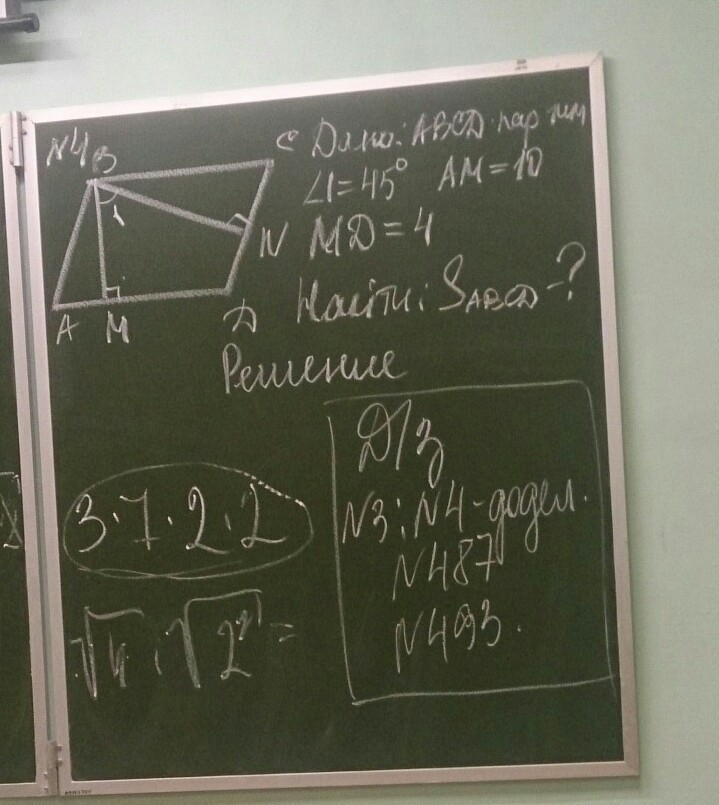 N4
B
C
1
N
A
M
D
Дано: ABCD-пар-мм
∠1=45° AM=10
MD=4
Найти: SABCD-?
Решение
3·7·2·2
Д/з
N3; N4-додел.
N487
N493.